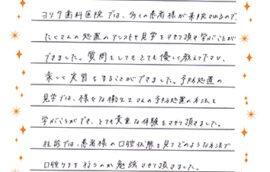 ヨリタ歯科医院では、多くの患者様が来院されるので、
たくさんの処置のアシストや見学をさせて頂き学ぶことが
できました。質問をしてもとても優しく教えて下さり、
楽しく実習をすることができました。予防処置の
見学では、様々な衛生士さんの予防処置の方法を
学ぶことができ、とても貴重な体験をさせて頂きました。
往診では、患者様の口腔状態を見てどのような方法で
口腔ケアを行うのか勉強させて頂きました。